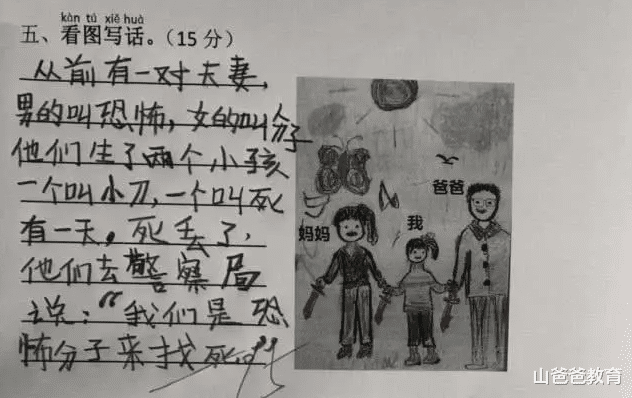 kàn tú xiě huà
五、看图写话。(15分)
从前有一对夫妻,
男的叫恐怖,女的叫分子
他们生了两个小孩
一个叫小刀,一个叫死
有一天,死丢了,
他们去警察局
说:“我们是恐
怖分子来找死。”
妈妈
我
爸爸
山爸爸教育